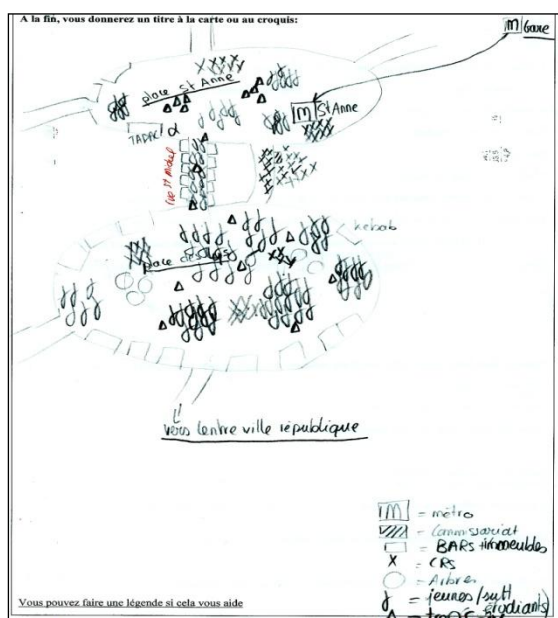 A la fin, vous donnerez un titre à la carte ou au croquis:
M Gare
place St Anne
M St Anne
TABAC
rue St Michel
kebab
place des Lys
vers Centre ville république
M = métro
= Commissariat
= BARS + immeubles
X = CRS
= Arbres
= jeunes / surtt
étudiants)
Vous pouvez faire une légende si cela vous aide